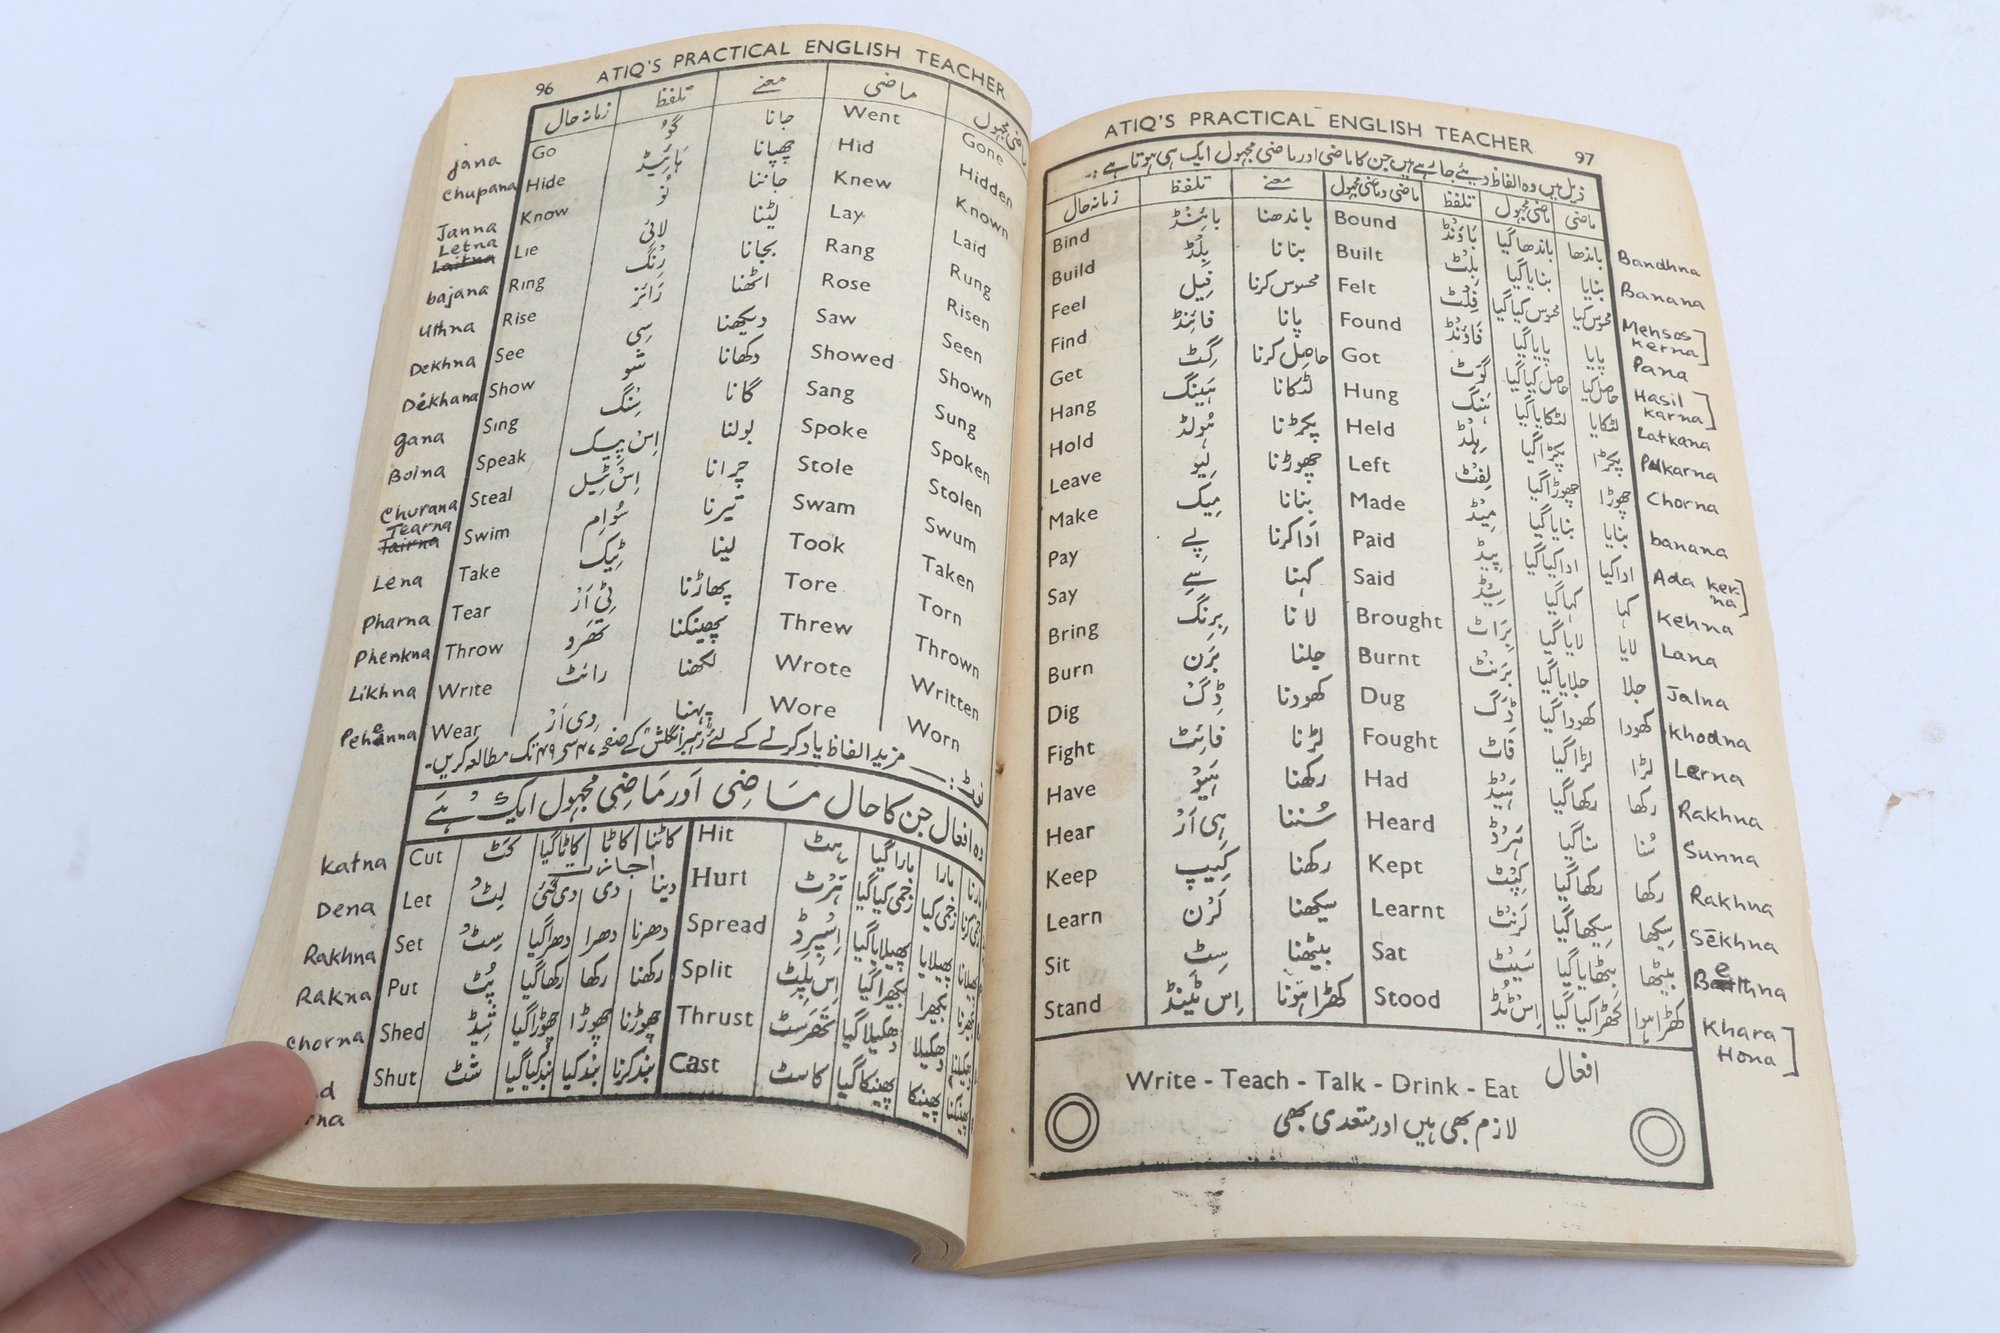 96 ATIQ'S PRACTICAL ENGLISH TEACHER
زمانہ حال تلفظ معنے ماضی ماضی مجہول
jana Go گو جانا Went Gone
chupana Hide ہائیڈ چھپانا Hid Hidden
Janna Know نو جاننا Knew Known
Letna Lie لائی لیٹنا Lay Laid
bajana Ring رِنگ بجانا Rang Rung
uthna Rise رائز اٹھنا Rose Risen
Dekhna See سی دیکھنا Saw Seen
Dekhana Show شو دکھانا Showed Shown
gana Sing سِنگ گانا Sang Sung
Bolna Speak اِس پیک بولنا Spoke Spoken
Churana Steal اِس ٹیل چرانا Stole Stolen
Tearna Swim سُوام تیرنا Swam Swum
Lena Take ٹیک لینا Took Taken
Pharna Tear ٹی اَر پھاڑنا Tore Torn
Phenkna Throw تھرو پھینکنا Threw Thrown
Likhna Write رائٹ لکھنا Wrote Written
Pehenna Wear وی اَر پہننا Wore Worn
نوٹ:— مزید الفاظ یاد کرنے کے لئے رہبر انگلش کے صفحہ ۴۷ سے ۴۹ تک مطالعہ کریں۔
وہ افعال جن کا حال ماضی اور ماضی مجہول ایک ہے
Katna Cut کٹ کاٹا گیا کاٹا کاٹنا Hit ہٹ مارا گیا مارا مارنا
اجازت
Dena Let لٹ دی گئی دی دینا Hurt ہرٹ زخمی کیا گیا زخمی کیا زخمی کرنا
Rakhna Set سٹ دھرا گیا دھرا دھرنا Spread اسپرڈ پھیلایا گیا پھیلایا پھیلانا
Rakna Put پُٹ رکھا گیا رکھا رکھنا Split اِس پلٹ بکھرا گیا بکھرا بکھرنا
Chorna Shed شیڈ چھوڑا گیا چھوڑا چھوڑنا Thrust تھرسٹ دھکیلا گیا دھکیلا دھکیلنا
Shut شٹ بند کیا گیا بند کیا بند کرنا Cast کاسٹ پھینکا گیا پھینکا پھینکنا
ATIQ'S PRACTICAL ENGLISH TEACHER 97
ذیل میں وہ الفاظ دیئے جا رہے ہیں جن کا ماضی اور ماضی مجہول ایک ہی ہوتا ہے:-
زمانہ حال تلفظ معنے ماضی و ماضی مجہول تلفظ ماضی مجہول ماضی
Bind بائنڈ باندھنا Bound باؤنڈ باندھا گیا باندھا Bandhna
Build بِلڈ بنانا Built بِلٹ بنایا گیا بنایا Banana
Feel فیل محسوس کرنا Felt فلٹ محسوس کیا گیا محسوس کیا Mehsos kerna
Find فائنڈ پانا Found فاؤنڈ پایا گیا پایا Pana
Get گِٹ حاصل کرنا Got گوٹ حاصل کیا گیا حاصل کیا Hasil karna
Hang ہینگ لٹکانا Hung ہنگ لٹکایا گیا لٹکایا Latkana
Hold ہولڈ پکڑنا Held ہلڈ پکڑا گیا پکڑا Pukarna
Leave لیو چھوڑنا Left لفٹ چھوڑا گیا چھوڑا Chorna
Make میک بنانا Made میڈ بنایا گیا بنایا banana
Pay پے اَدا کرنا Paid پیڈ ادا کیا گیا ادا کیا Ada ker-na
Say سے کہنا Said سیڈ کہا گیا کہا Kehna
Bring برنگ لانا Brought براٹ لایا گیا لایا Lana
Burn برن جلنا Burnt برنٹ جلایا گیا جلا Jalna
Dig ڈِگ کھودنا Dug ڈَگ کھودا گیا کھودا Khodna
Fight فائٹ لڑنا Fought فاٹ لڑا گیا لڑا Lerna
Have ہیو رکھنا Had ہیڈ رکھا گیا رکھا Rakhna
Hear ہی اَر سُننا Heard ہرڈ سنا گیا سُنا Sunna
Keep کیپ رکھنا Kept کپٹ رکھا گیا رکھا Rakhna
Learn لرن سیکھنا Learnt لرنٹ سیکھا گیا سیکھا Sēkhna
Sit سِٹ بیٹھنا Sat سیٹ بٹھایا گیا بیٹھا Bethna
Stand اِس ٹینڈ کھڑا ہونا Stood اِس ٹڈ کھڑا کیا گیا کھڑا ہوا Khara Hona
افعال Write - Teach - Talk - Drink - Eat
لازم بھی ہیں اور متعدی بھی